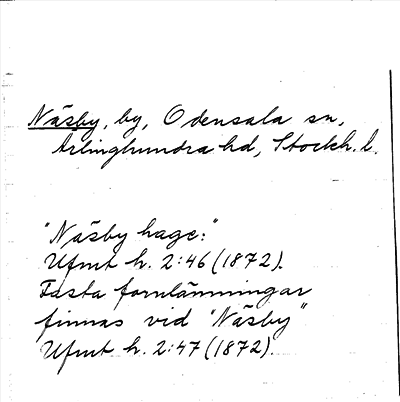 Näsby, by, Odensala sn,
Ärlinghundra hd, Stockh. l.
"Näsby hage:"
Ufmt h. 2:46 (1872).
Fasta fornlämningar
finnas vid "Näsby"
Ufmt h. 2:47 (1872).